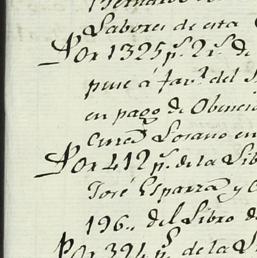 Labores de esta
Por 1325 p.s 2 r.s de
puse á fav.r del S
en pago de Obencio
Losano en
Por 412 p.s de la Lib
José Esparza y C
196., del Libro de
Por 394 p.s de la L